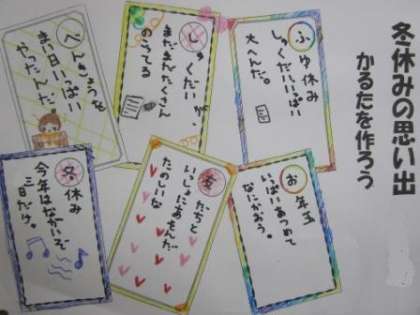 冬休みの思い出
かるたを作ろう
ふゆ休み
しゅくだいいっぱい
大へんだ。
しゅくだいが、
まだまだたくさん
のこってる
べんきょうを
まい日いっぱい
やったんだ。
お年玉
いっぱいあつめて
なにかおう。
友だちと
いっしょにあそんだ
たのしいな
冬休み
今年はながいぞ
三日だけ。